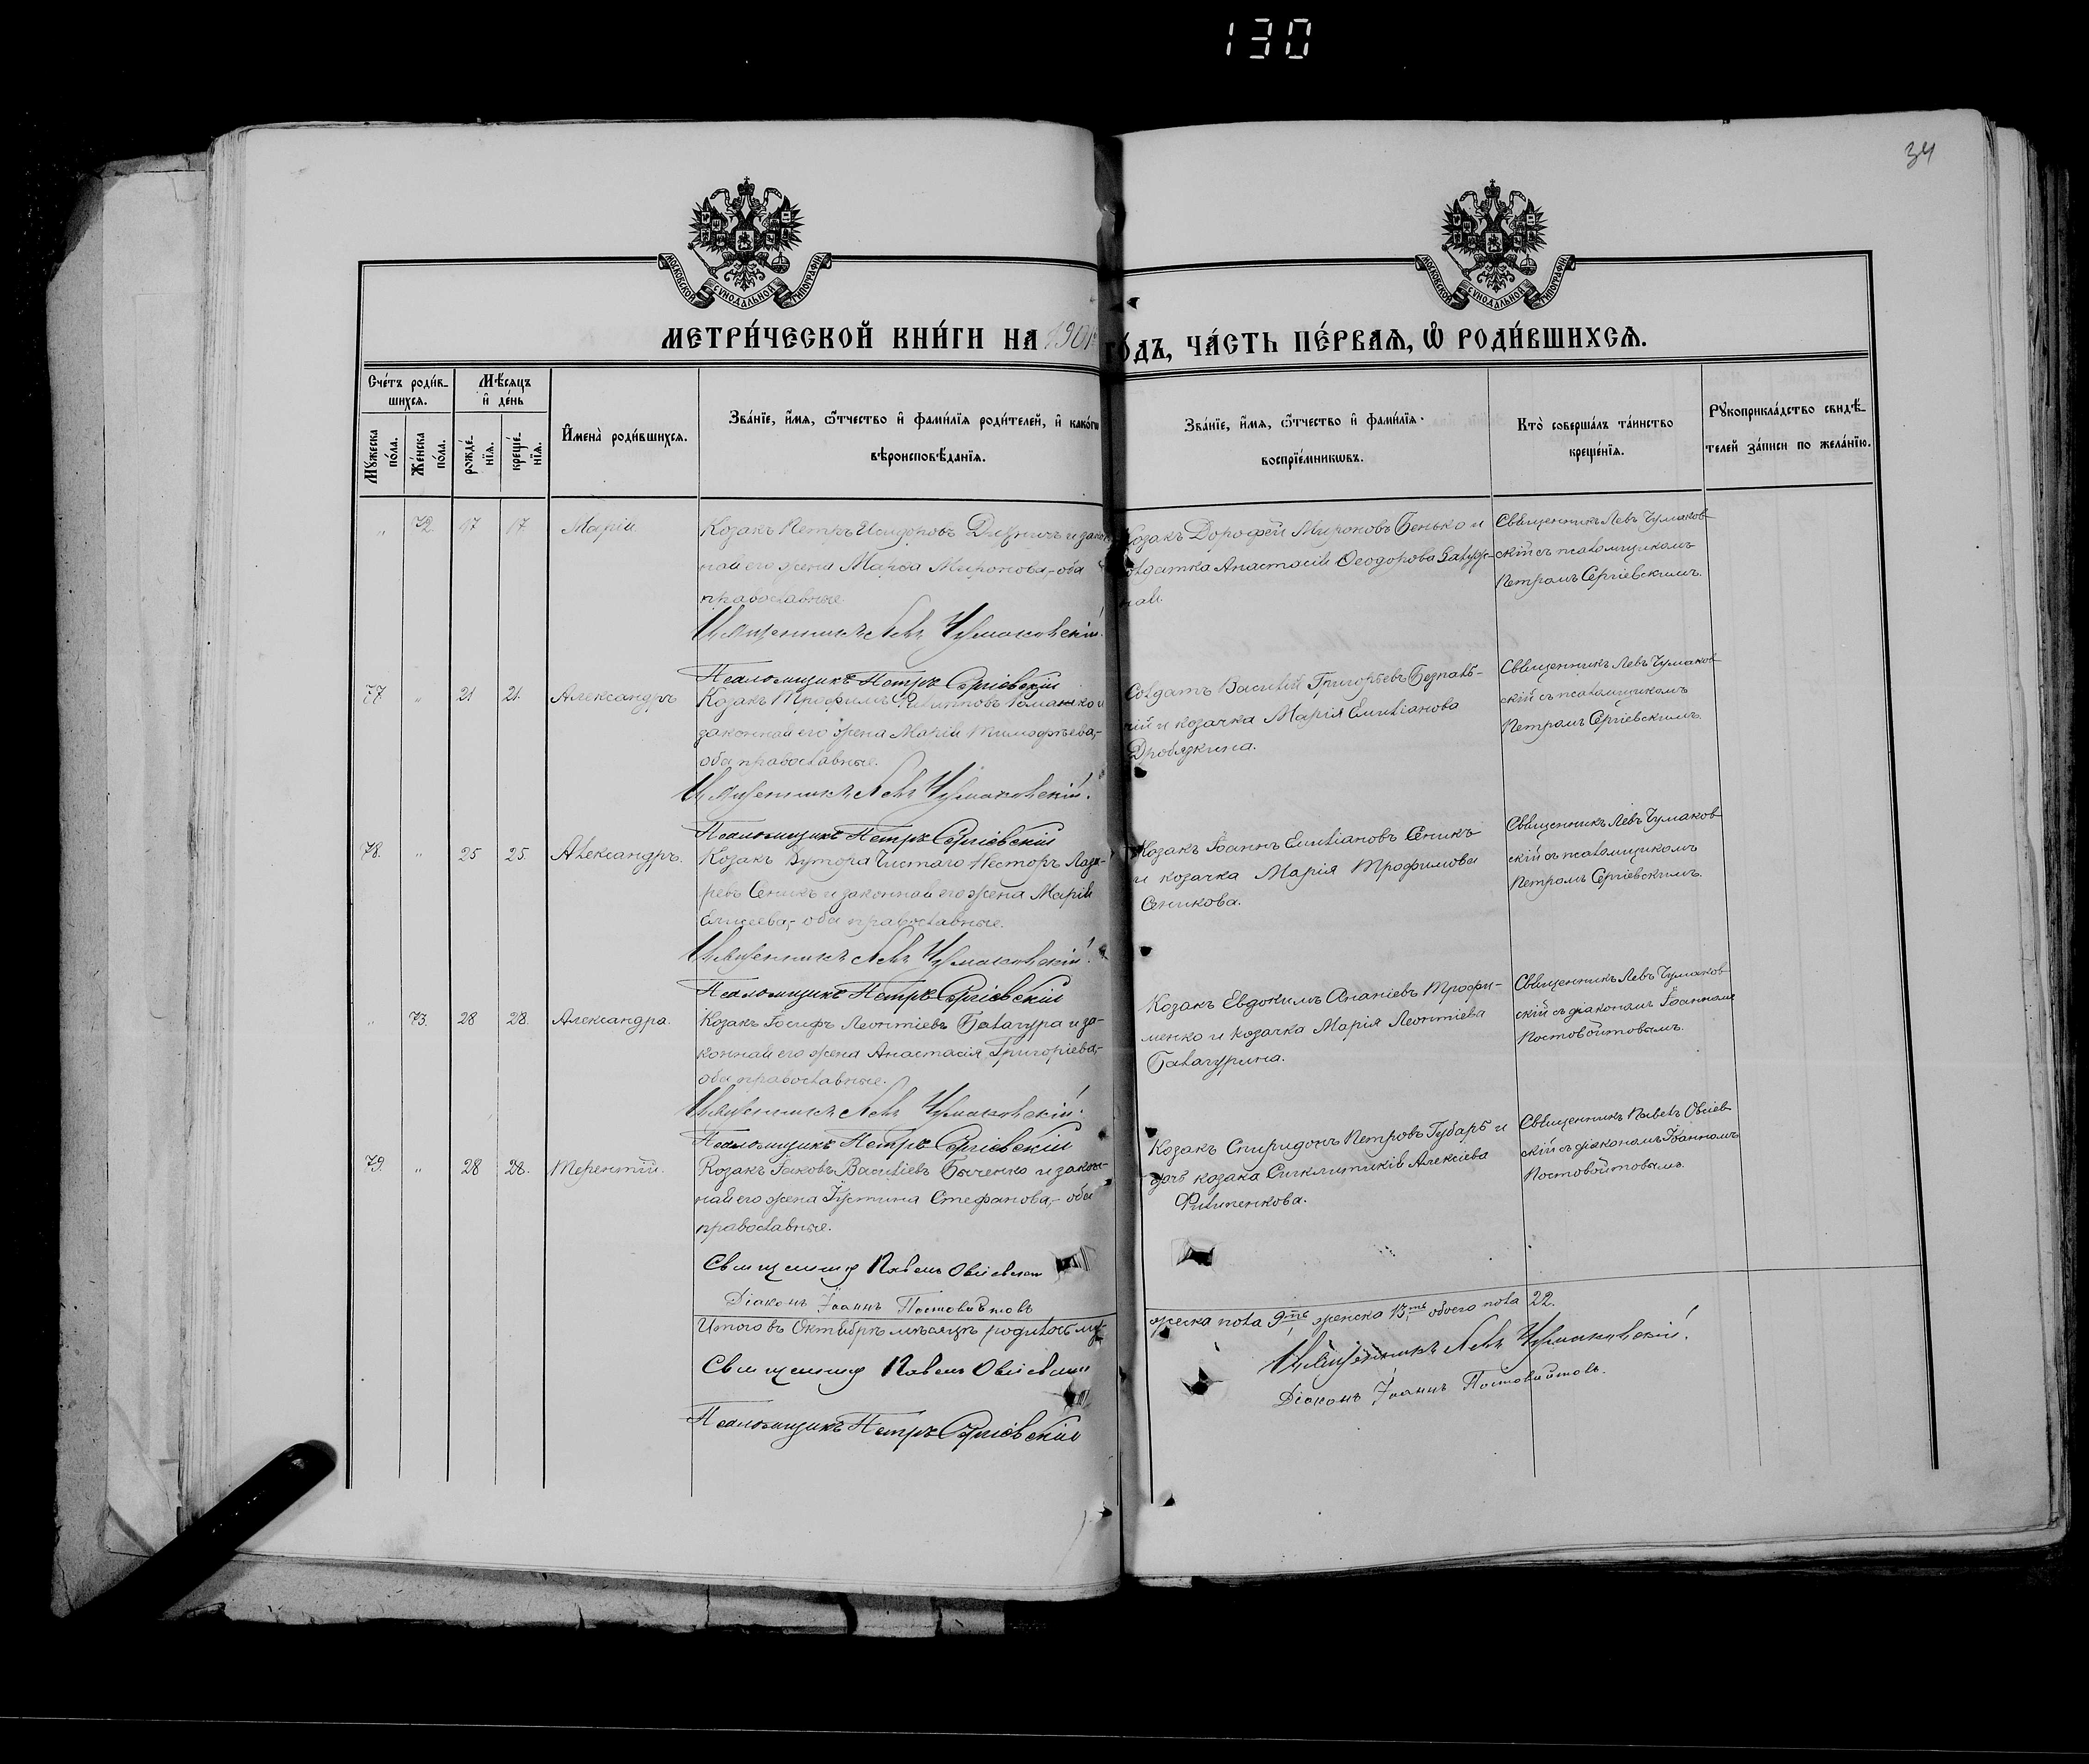 130
34
МОСКОВСКОЙ СѴНОДАЛЬНОЙ ТИПОГРАФІИ
МОСКОВСКОЙ СѴНОДАЛЬНОЙ ТИПОГРАФІИ
МЕТРИ́ЧЕСКОЙ КНИ́ГИ НА 1901 ГО́ДЪ, ЧА́СТЬ ПЕ́РВАѦ, Ѽ РОДИ́ВШИХСѦ.
Сче́тъ роди́в-
шихсѧ.
Мѣ́сѧцъ
и҆ де́нь
Мꙋ́жеска по́ла.
Же́нска по́ла.
рожде́-
нїѧ.
креще́-
нїѧ.
И҆мена̀ роди́вшихсѧ.
Зва́нїе, и҆́мѧ, ѻ҆́тчество и҆ фами́лїѧ роди́телей, и҆ како́гѡ
вѣроисповѣ́данїѧ.
Зва́нїе, и҆́мѧ, ѻ҆́тчество и҆ фами́лїѧ
воспрїе́мникѡвъ.
Кто̀ соверша́лъ та́инство
креще́нїѧ.
Рꙋкоприкла́дство свидѣ́-
телей за́писи по жела́нїю.
„ 72. 17 17. Марія
Козакъ Петръ Исидоровъ и закон-
ная его жена Марѳа Миронова,- оба
православные.
Священникъ Левъ Чумаковскій.
Псаломщикъ Петръ Сергіевскій
Козакъ Дорофей Мироновъ Бенько и
солдатка Анастасія Ѳеодорова
ная.
Священникъ Левъ Чумаков-
скій съ псаломщикомъ
Петромъ Сергіевскимъ.
77 „ 21 21. Александръ
Козакъ Трофимъ Филипповъ Романко и
законная его жена Марія Тимофѣева,-
оба православные.
Священникъ Левъ Чумаковскій.
Псаломщикъ Петръ Сергіевскій
Солдатъ Василій Григорьевъ Безпаль-
чій и козачка Марія Емиліанова
Дробязкина.
Священникъ Левъ Чумаков-
скій съ псаломщикомъ
Петромъ Сергіевскимъ.
78. „ 25 25. Александръ.
Козакъ Хутора Чистаго Несторъ Лаза-
ревъ Сеникъ и законная его жена Марія
Елисеева,- оба православные.
Священникъ Левъ Чумаковскій.
Псаломщикъ Петръ Сергіевскій
Козакъ Іоаннъ Емиліановъ Сеникъ
и козачка Марія Трофимова
Сеникова.
Священникъ Левъ Чумаков-
скій съ псаломщикомъ
Петромъ Сергіевскимъ.
„ 73. 28 28. Александра.
Козакъ Іосифъ Леонтіевъ Балагура и за-
конная его жена Анастасія Григоріева,-
оба православные.
Священникъ Левъ Чумаковскій.
Псаломщикъ Петръ Сергіевскій
Козакъ Евдокимъ Ананіевъ Трофи-
менко и козачка Марія Леонтіева
Балагурина.
Священникъ Левъ Чумаков-
скій съ діакономъ Іоанномъ
Постовойтовымъ.
79. „ 28 28. Терентій.
Козакъ Іаковъ Василіевъ Быченко и закон-
ная его жена Іустина Стефанова,- оба
православные.
Священникъ Павелъ Овсіевскій
Діаконъ Іоаннъ Постовойтовъ
Козакъ Спиридонъ Петровъ Губарь и
дочь козака Синклитикія Алексіева
Филипенкова.
Священникъ Павелъ Овсіев-
скій съ діакономъ Іоанномъ
Постовойтовымъ.
Итого въ Октябрѣ мѣсяцѣ родилось му-
жеска пола 9ть женска 13ть обоего пола 22.
Священникъ Павелъ Овсіевскій
Псаломщикъ Петръ Сергіевскій
Священникъ Левъ Чумаковскій.
Діаконъ Іоаннъ Постовойтовъ.